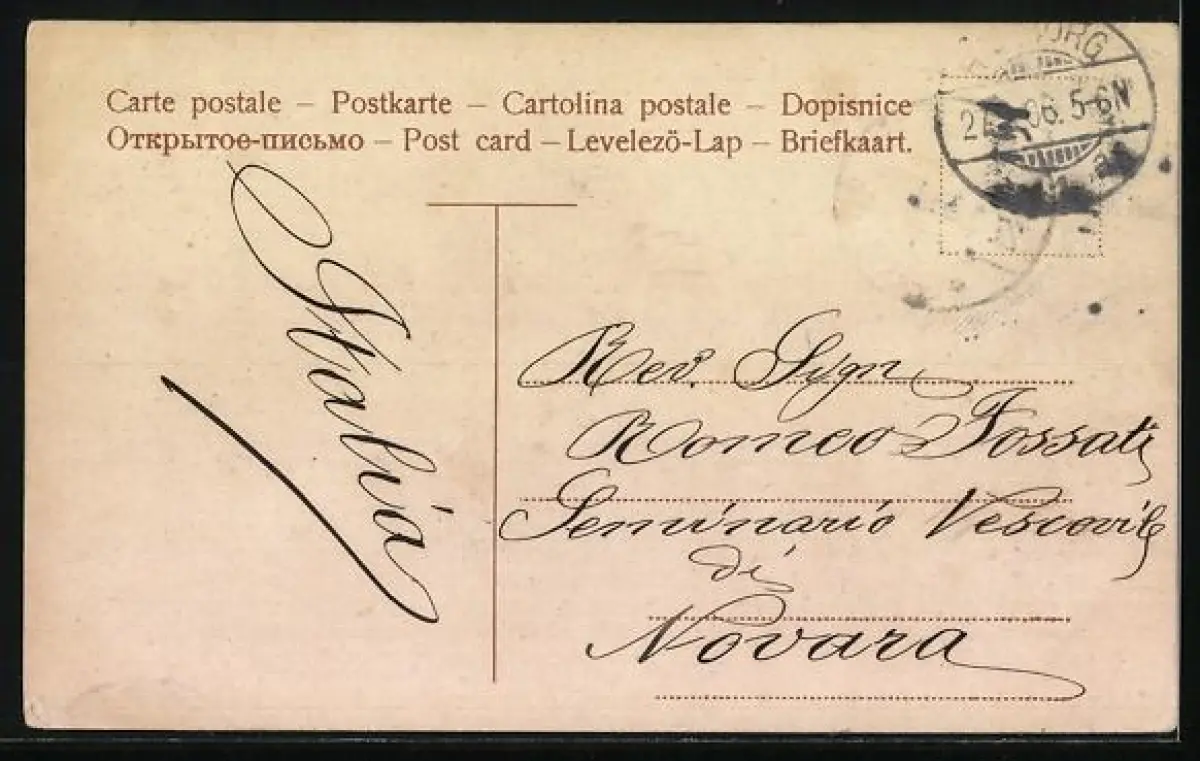 Carte postale – Postkarte – Cartolina postale – Dopisnice
Открытое-письмо – Post card – Levelezö-Lap – Briefkaart.
06.5-6N
Italia
Rev. Sign
Romeo Fossati
Seminario Vescovile
di
Novara